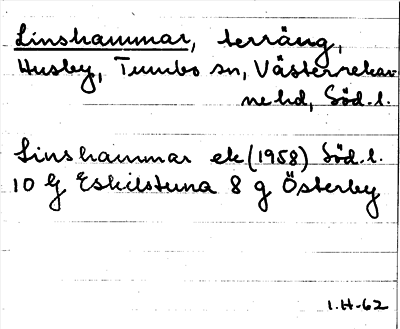 Linshammar, terräng,
Husby, Tumbo sn, Västerrekar-
ne hd, Söd. l.
Linshammar ek (1958) Söd. l.
10 G Eskilstuna 8 g Österby
1.H-62